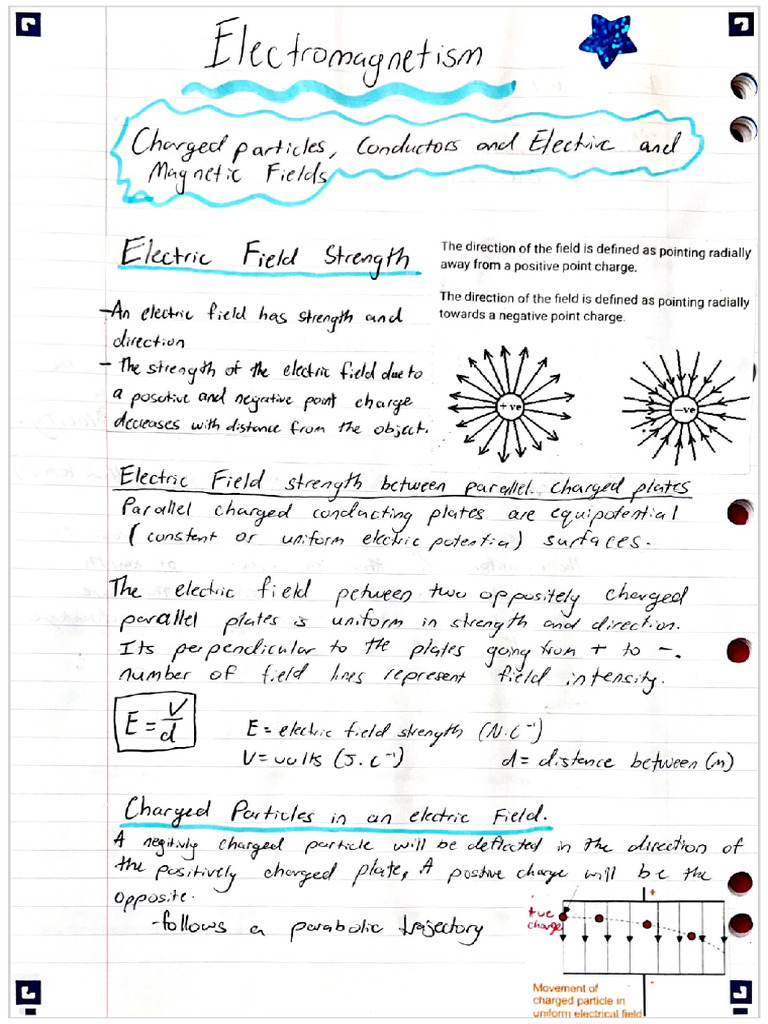 Electromagnetism
Charged particles, Conductors and Electric and
Magnetic Fields
Electric Field Strength
The direction of the field is defined as pointing radially
away from a positive point charge.
The direction of the field is defined as pointing radially
towards a negative point charge.
- An electric field has strength and
direction
- The strength of the electric field due to
a positive and negative point charge
decreases with distance from the object.
+ ve
-ve
Electric Field strength between parallel charged plates
Parallel charged conducting plates are equipotential
(constant or uniform electric potential) surfaces.
The electric field between two oppositely charged
parallel plates is uniform in strength and direction.
Its perpendicular to the plates going from + to -.
number of field lines represent field intensity.
E = V/d
E = electric field strength (N.C⁻¹)
V = volts (J.C⁻¹) d = distance between (m)
Charged Particles in an electric Field.
A negitivly charged particle will be deflected in the direction of
the positively charged plate, A postive charge will be the
opposite.
- follows a parabolic trajectory
+
+ve
charge
-
Movement of
charged particle in
uniform electrical field